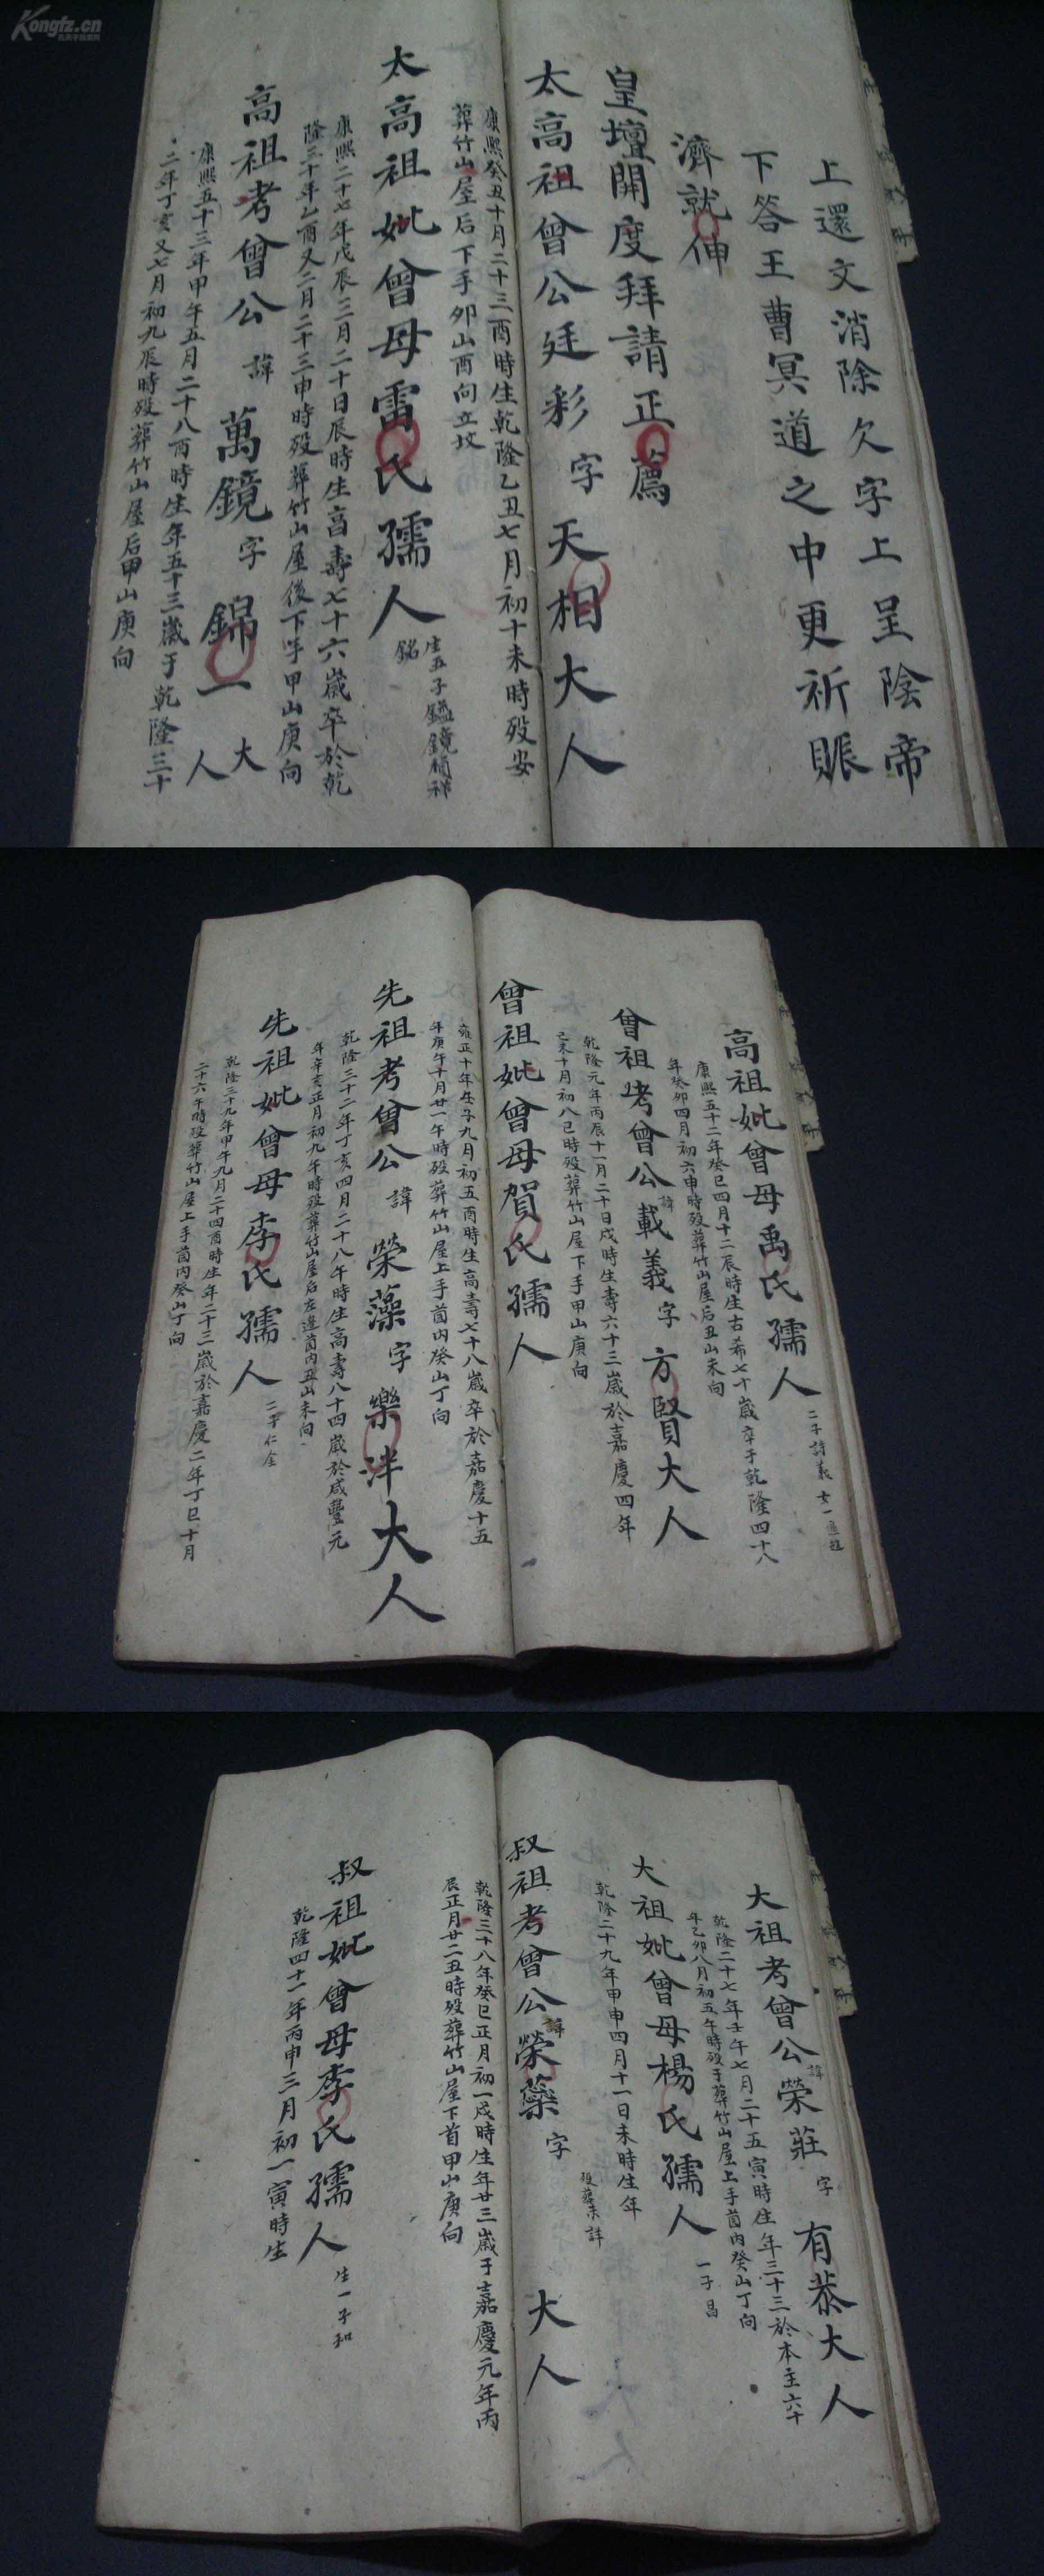 Kongfz.cn
上還文消除欠字上呈陰帝
下答王曹冥道之中更祈賑
濟就伸
皇壇開度拜請正薦
太高祖曾公廷彩字天相大人
康熙癸丑十月二十三酉時生乾隆乙丑七月初十未時歿安
葬竹山屋后下手卯山酉向立坟
太高祖妣曾母雷氏孺人
生五子鎰鏡楠祥
銘
康熙二十七年戊辰三月二十日辰時生高壽七十六歲卒於乾
隆三十年乙酉又二月二十三申時歿葬竹山屋後下手甲山庚向
高祖考曾公諱萬鏡字錦一大人
康熙五十三年甲午五月二十八酉時生年五十三歲于乾隆三十
二年丁亥又七月初九辰時歿葬竹山屋后甲山庚向
高祖妣曾母禹氏孺人
二子詩義女一
康熙五十二年癸巳四月十二辰時生古希七十歲卒于乾隆四十八
年癸卯四月初六申時歿葬竹山屋后丑山未向
曾祖考曾公諱載義字方賢大人
乾隆元年丙辰十一月二十日戌時生壽六十三歲於嘉慶四年
己未十月初八巳時歿葬竹山屋下手甲山庚向
曾祖妣曾母賀氏孺人
雍正十年壬子九月初五酉時生高壽七十八歲卒於嘉慶十五
年庚午十月廿一午時歿葬竹山屋上手茴内癸山丁向
先祖考曾公諱榮藻字樂泮大人
乾隆三十二年丁亥四月二十八午時生高壽八十四歲於咸豐元
年辛亥正月初九午時歿葬竹山屋后左邊茴内丑山未向
先祖妣曾母李氏孺人
二子仁全
乾隆三十九年甲午九月二十四酉時生年二十三歲於嘉慶二年丁巳十月
二十六午時歿葬竹山屋上手茴内癸山丁向
大祖考曾公諱榮莊字有恭大人
乾隆二十七年壬午七月二十五寅時生年三十三於本主六十
年乙卯八月初五午時歿于葬竹山屋上手茴内癸山丁向
大祖妣曾母楊氏孺人
一子昌
乾隆二十九年甲申四月十一日未時生年
歿葬未詳
叔祖考曾公諱榮蘂字大人
乾隆三十八年癸巳正月初一戌時生年廿三歲于嘉慶元年丙
辰正月廿二丑時歿葬竹山屋下首甲山庚向
叔祖妣曾母李氏孺人
生一子和
乾隆四十一年丙申三月初一寅時生